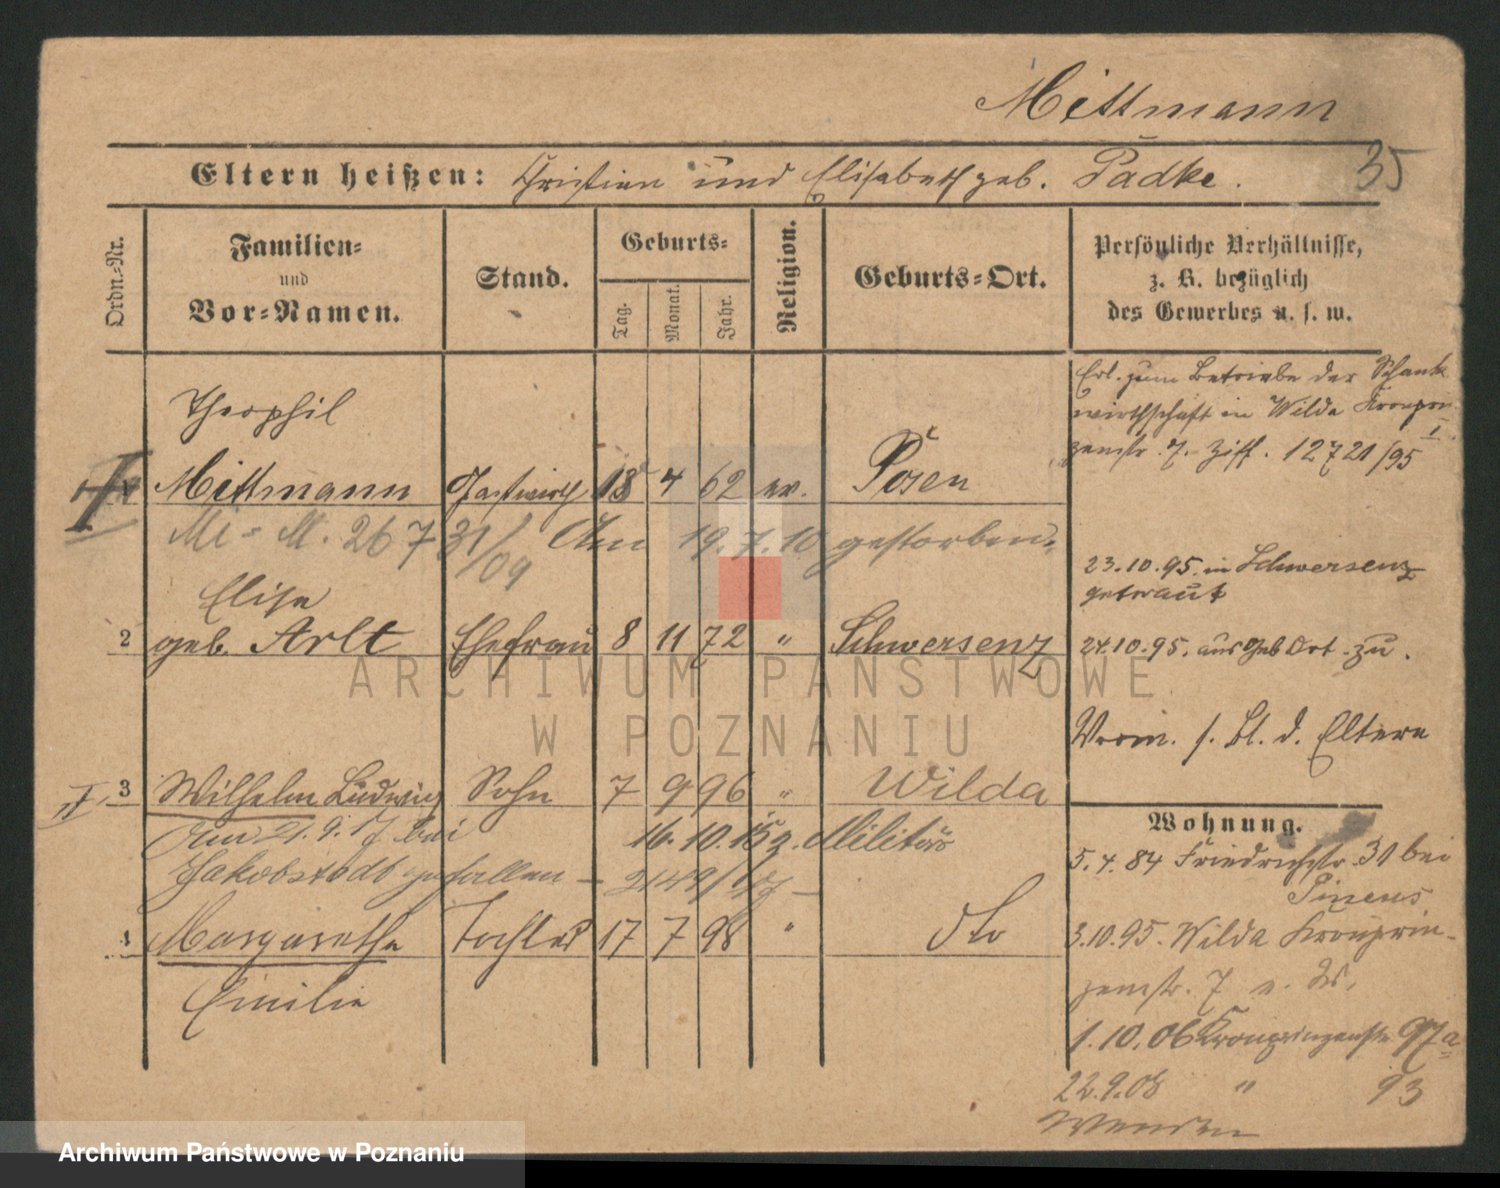 Mittmann
35
Eltern heißen: Christian und Elisabeth geb. Padke.
Ordn.-Nr.
Familien- und Vor-Namen.
Stand.
Geburts-
Tag.
Monat.
Jahr.
Religion.
Geburts-Ort.
Persönliche Verhältnisse,
z. B. bezüglich
des Gewerbes u. s. w.
Theophil
Mittmann Gastwirth 18 4 62 ev. Posen
Am 19.7.10 gestorben.
Elise
2 geb. Arlt Ehefrau 8 11 72 " Schwersenz
3 Wilhelm Ludwig Sohn 7 9 96 " Wilda
Am 21.9.17 bei
16.10.15 z. Militär
Jakobstadt gefallen —
4 Margarethe Tochter 17 7 98 " dto
Emilie
Erl. zum Betriebe der Schank
wirthschaft in Wilda Kronprin
zenstr. 7. Ziff. 12721/95
23.10.95. in Schwersenz
getraut
24.10.95. aus Geb Ort zu.
Vorm. s. Bl. d. Eltern
Wohnung.
5.4.84 Friedrichstr. 31 bei
Pineus
3.10.95. Wilda Kronprin-
zenstr. 7
1.10.06 Kronprinzenstr 97a
22.9.08 " 93
ARCHIWUM PAŃSTWOWE
W POZNANIU
Archiwum Państwowe w Poznaniu